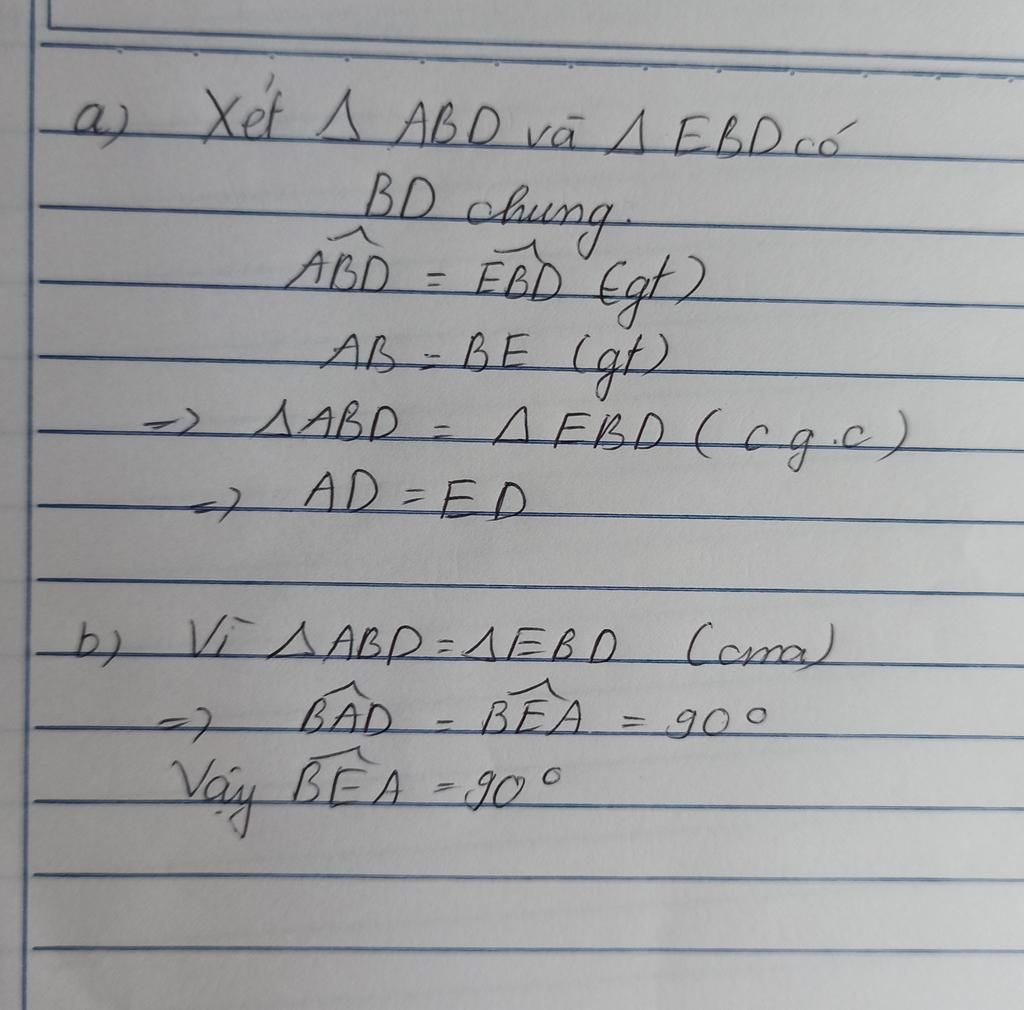 a) Xét Δ ABD và Δ EBD có
BD chung.
ABD̂ = EBD̂ (gt)
AB = BE (gt)
=> ΔABD = Δ EBD ( c g.c )
=> AD = ED
b) Vì ΔABD = ΔEBD (cma)
=> BÂD = BÊA = 90°
Vậy BÊA = 90°